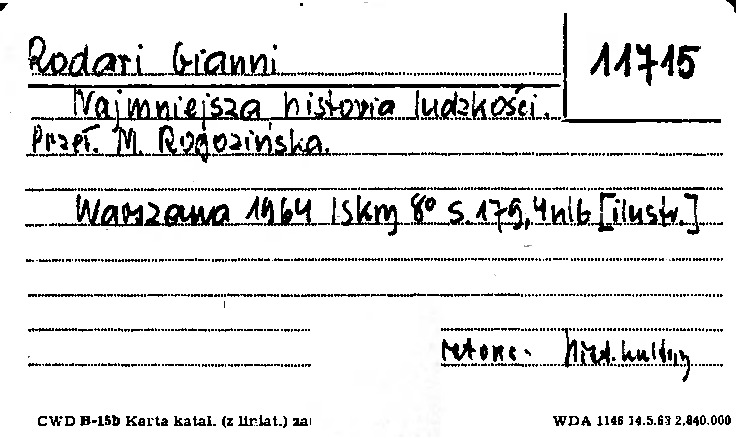 Rodari Gianni
11715
Najmniejsza historia ludzkości.
Przeł. M. Rogozińska.
Warszawa 1964 Iskry 8° s. 179, 4nlb [ilustr.]
hist. kultury
CWD B-15b Karta katal. (z liniat.) za
WDA 1146 14.5.63 2.840.000